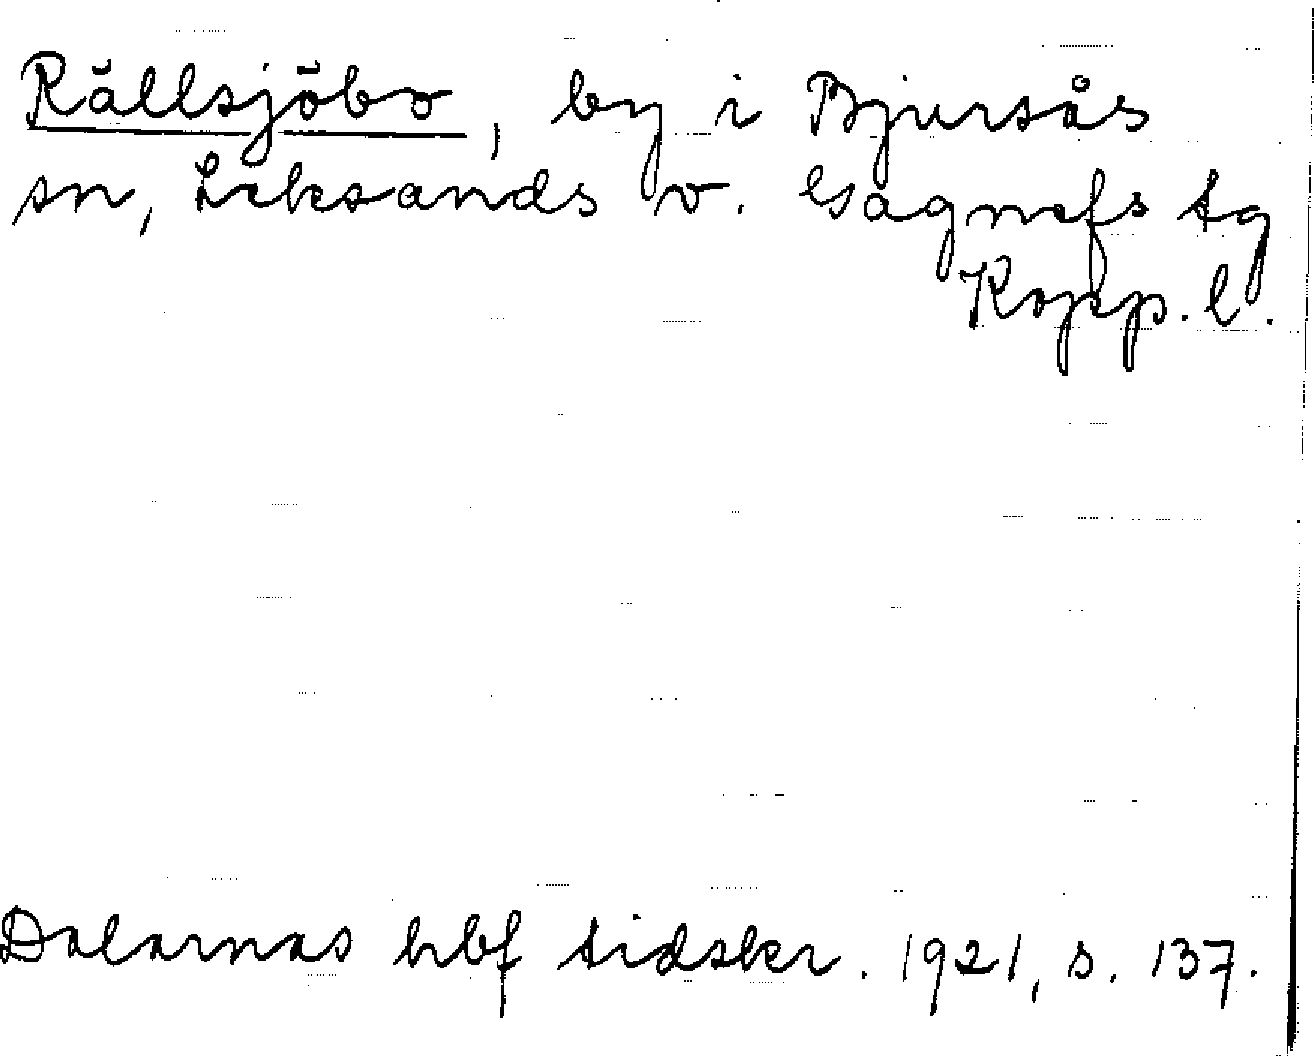 Rällsjöbo, by i Bjursås
sn, Leksands o. Gagnefs tg
Kopp. l.
Dalarnas hbf tidskr. 1921, s. 137.